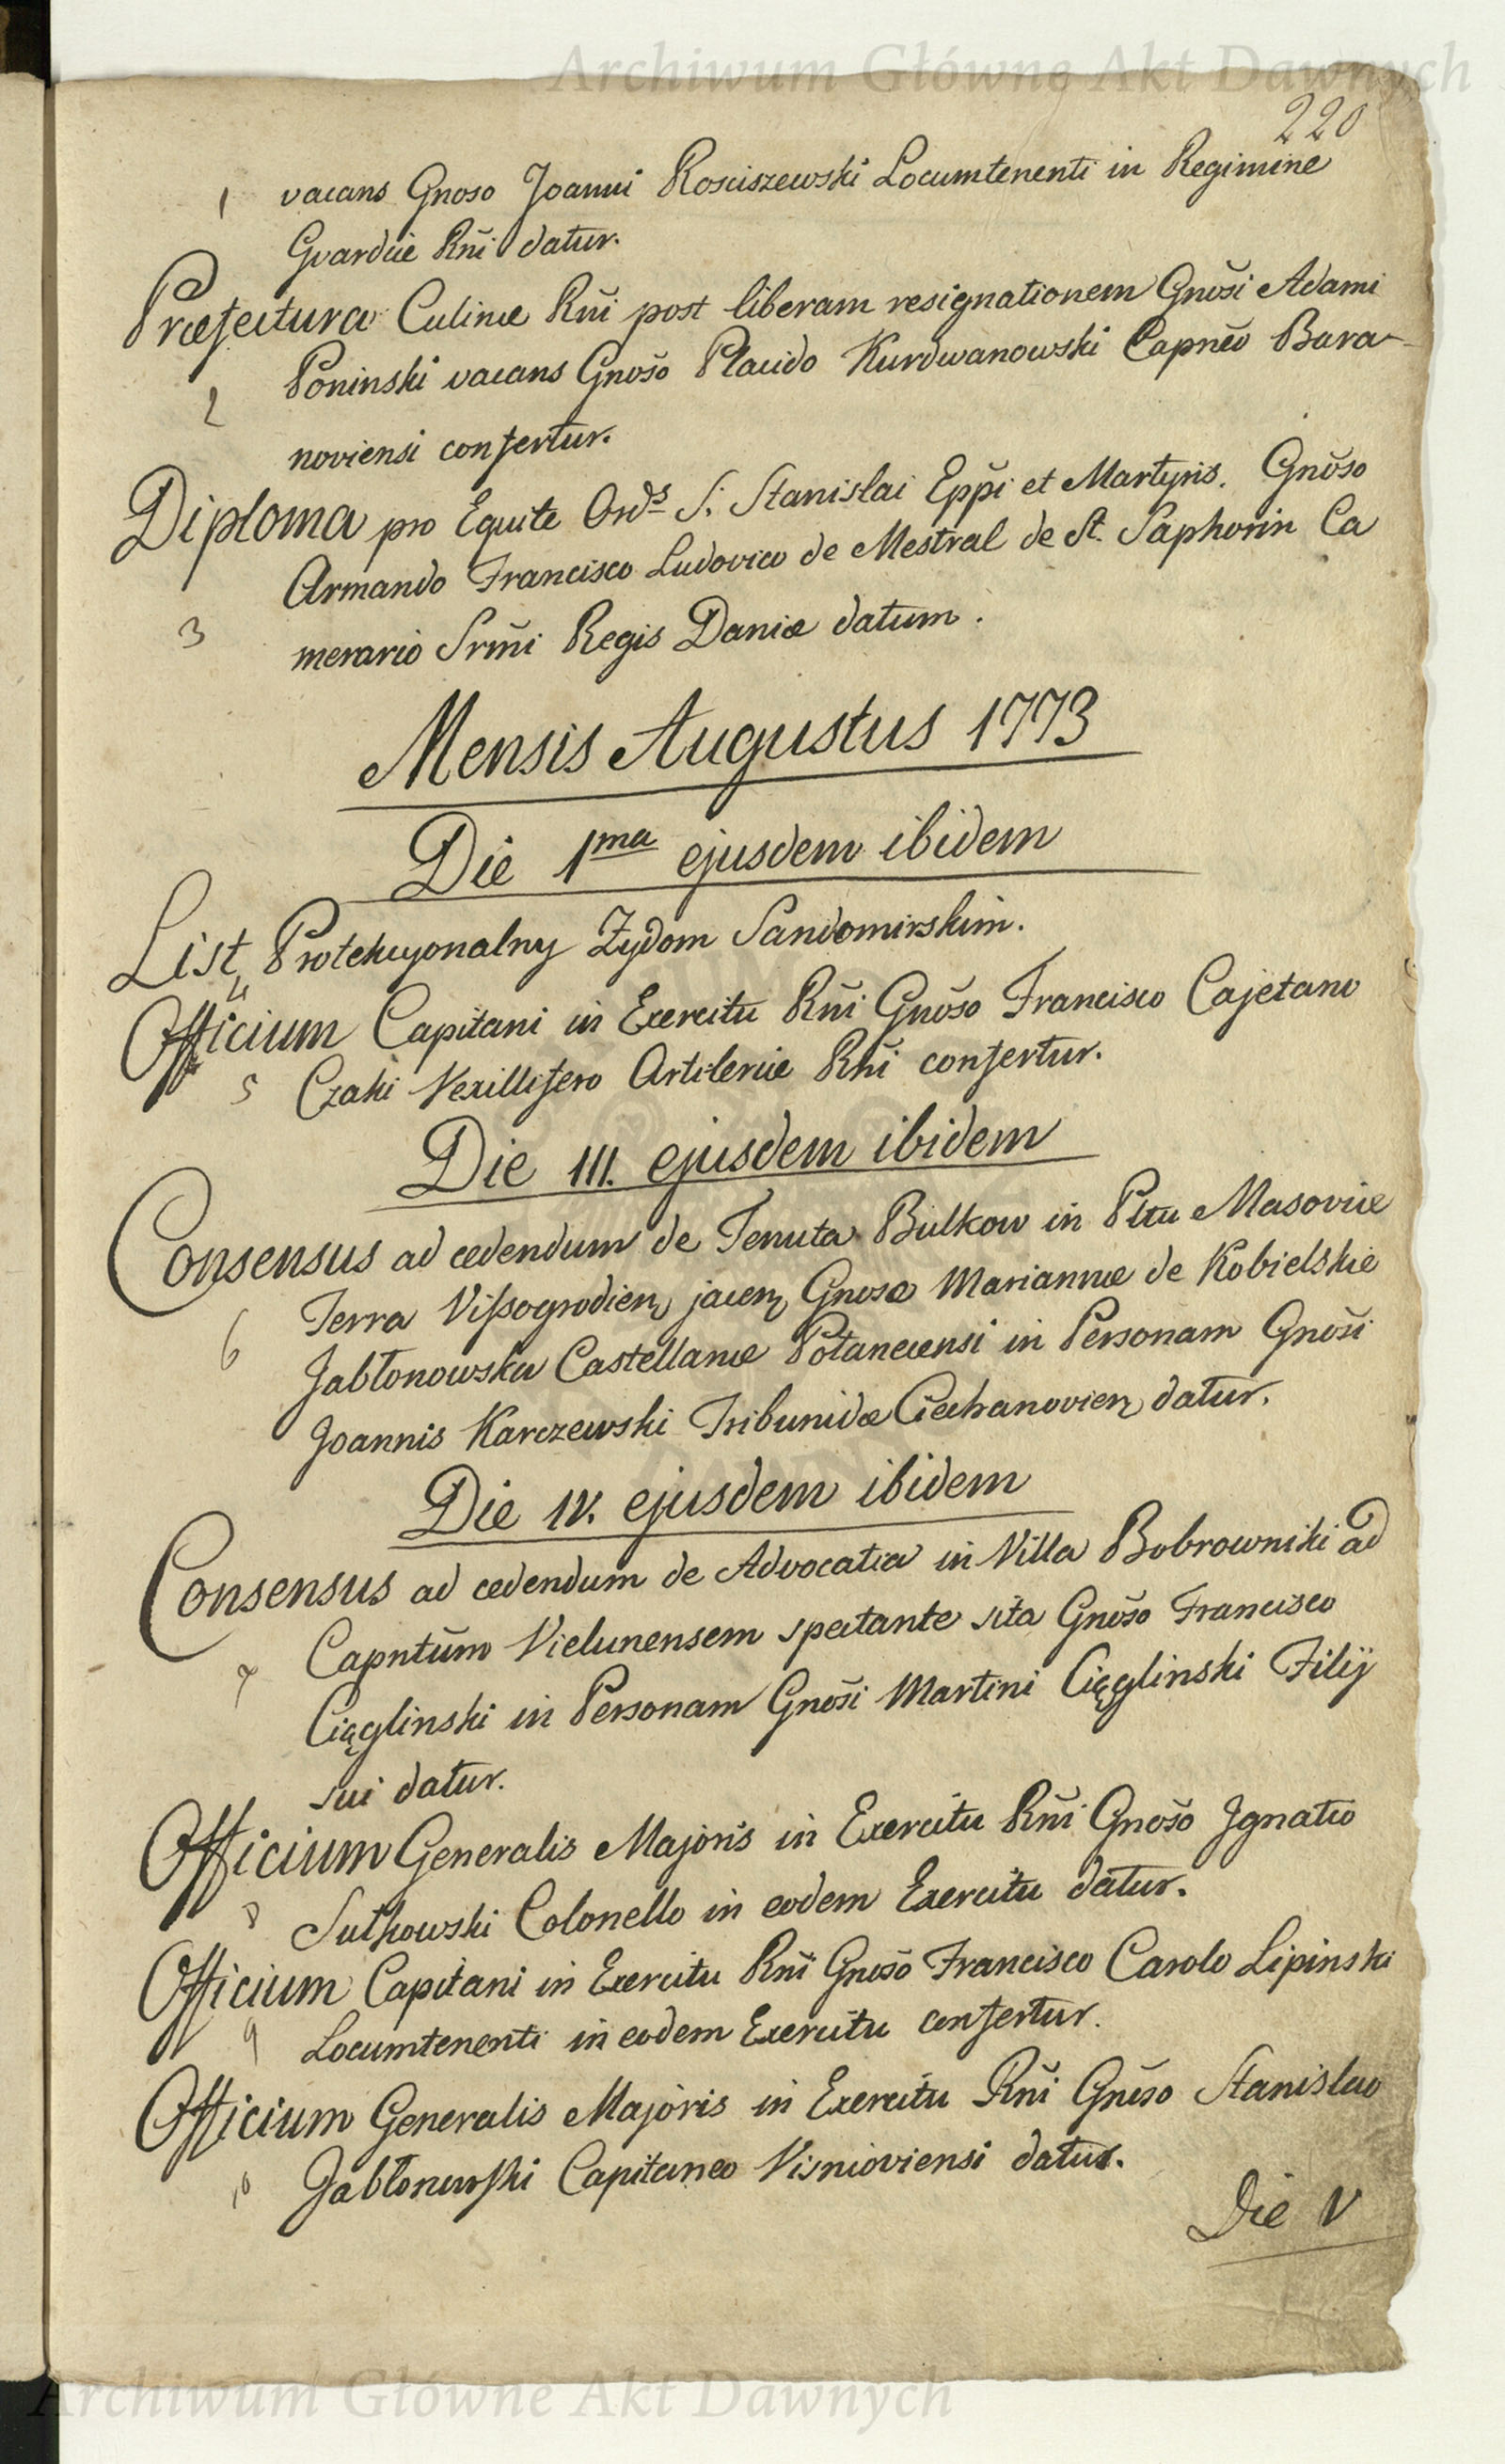 Archiwum Główne Akt Dawnych
220
1 vacans Gnoso Joanni Rosciszewski Locumtenenti in Regimine
Gvardiæ Rñi datur.
Præfectura Culinæ Rñi post liberam resignationem Gnõsi Adami
2 Poninski vacans Gnõso Placido Kurdwanowski Capnẽo Bara-
noviensi confertur.
Diploma pro Equite Ords S: Stanislai Eppĩ et Martyris. Gnõso
Armando Francisco Ludovico de Mestral de St. Saphorin Ca
3 merario Srmĩ Regis Daniæ datum.
Mensis Augustus 1773
Die 1ma ejusdem ibidem
List Protekcyonalny Zydom Sandomirskim.
4
Officium Capitani in Exercitu Rñi Gnõso Francisco Cajetano
5 Czaki Vexillifero Artileriæ Rñi confertur.
Die III. ejusdem ibidem
Consensus ad cedendum de Tenuta Bulkow in Pltu Masoviæ
Terra Vissogrodien jacen Gnosæ Mariannæ de Kobielskie
6 Jabłonowska Castellanæ Połanecensi in Personam Gnõsi
Joannis Karczewski Tribunidæ Ciechanovien datur.
Die IV. ejusdem ibidem
Consensus ad cedendum de Advocatia in Villa Bobrowniki ad
7 Capntũm Vielunensem spectante sita Gnõso Francisco
Ciąglinski in Personam Gnõsi Martini Ciąglinski Filij
sui datur.
Officium Generalis Majoris in Exercitu Rñi Gnõso Ignatio
8 Sutkowski Colonello in eodem Exercitu datur.
Officium Capitani in Exercitu Rñi Gnõso Francisco Carolo Lipinski
9 Locumtenenti in eodem Exercitu confertur.
Officium Generalis Majoris in Exercitu Rñi Gnõso Stanislao
10 Jabłonowski Capitaneo Visnioviensi datur.
Die V
Archiwum Główne Akt Dawnych